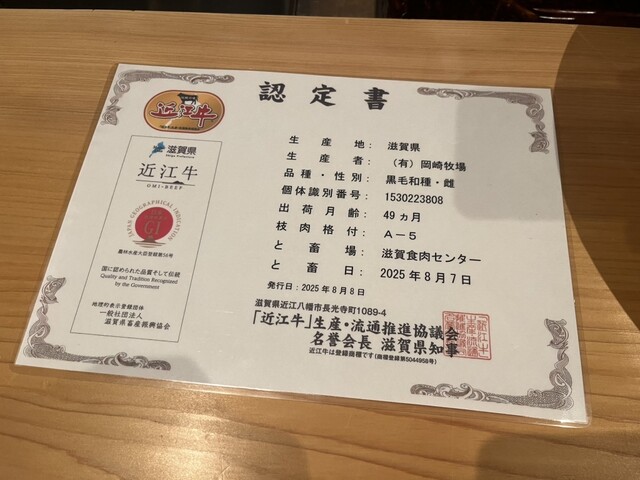 認定書
近江牛
滋賀県
Shiga Prefecture
近江牛
OMI-BEEF
JAPAN GEOGRAPHICAL INDICATION
GI
農林水産大臣登録第56号
国に認められた品質そして伝統
Quality and Tradition Recognized
by the Government
地理的表示登録団体
一般社団法人
滋賀県畜産振興協会
生産地： 滋賀県
生産者： （有）岡崎牧場
品種・性別： 黒毛和種・雌
個体識別番号： 1530223808
出荷月齢： 49ヵ月
枝肉格付： A－5
と畜場： 滋賀食肉センター
と畜日： 2025年8月7日
発行日：2025年8月8日
滋賀県近江八幡市長光寺町1089-4
「近江牛」生産・流通推進協議会
名誉会長 滋賀県知事
近江牛は登録商標です(商標登録第5044958号)